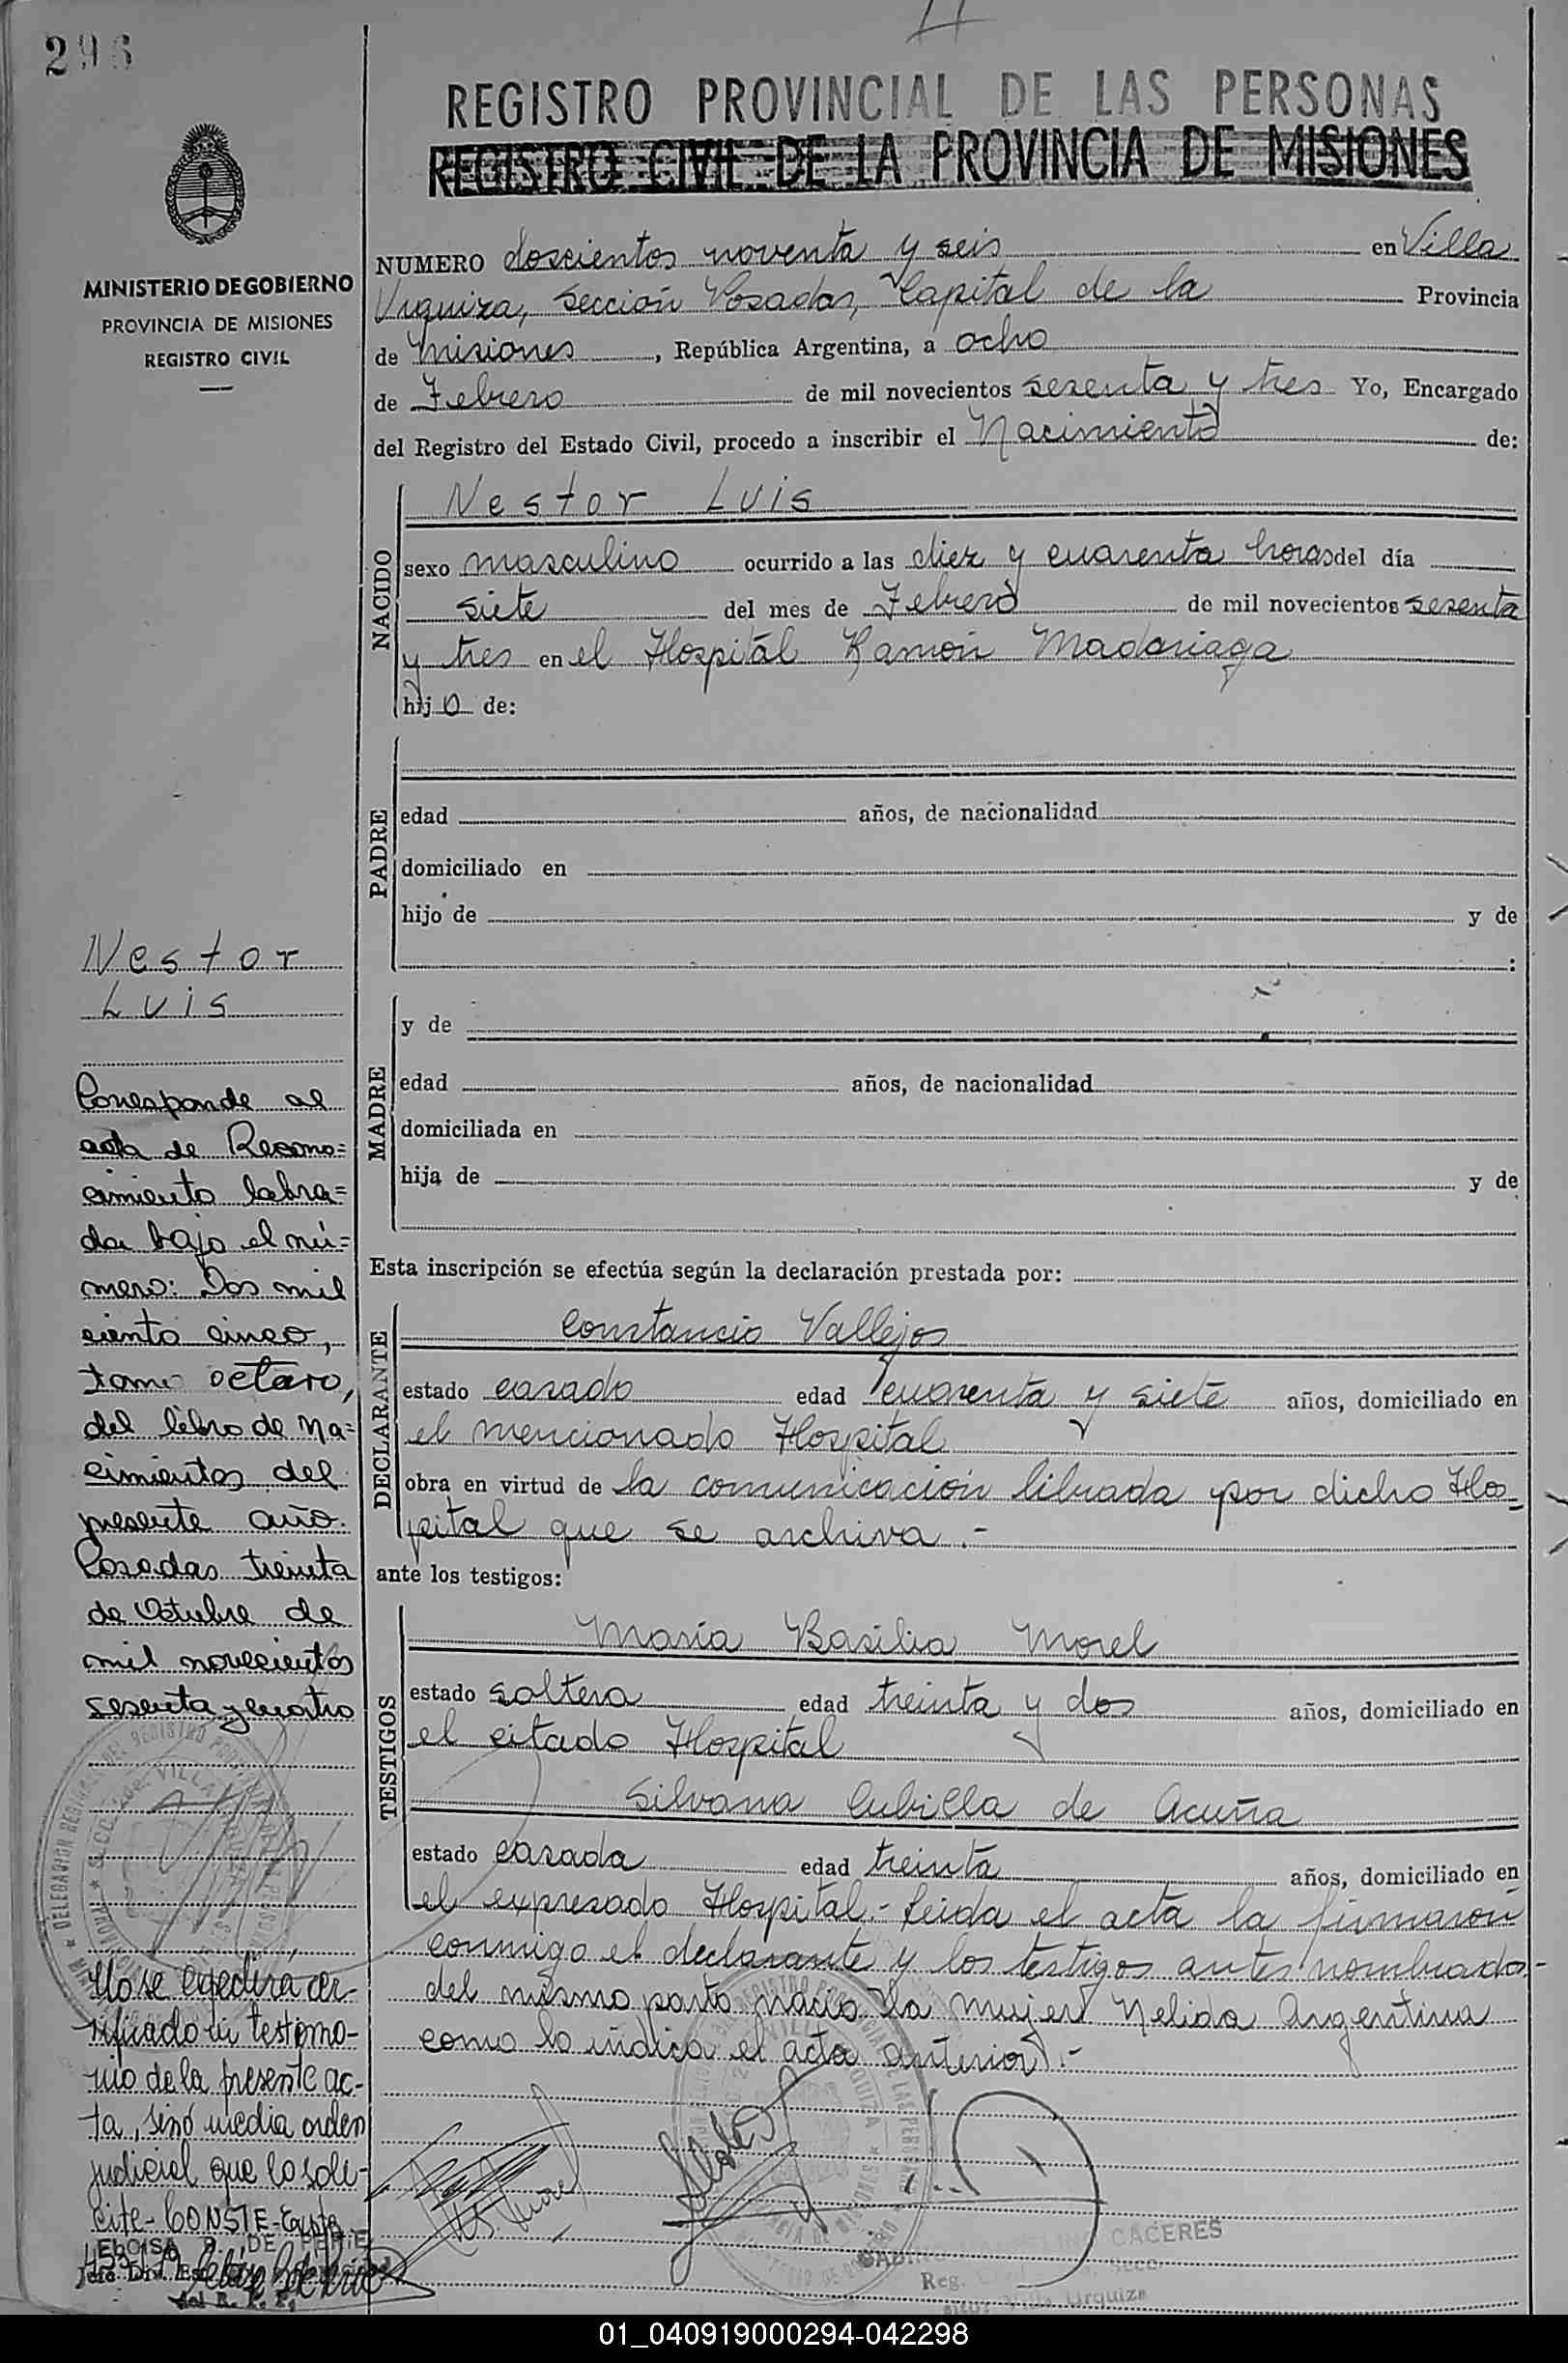 296
REGISTRO PROVINCIAL DE LAS PERSONAS
REGISTRO CIVIL DE LA PROVINCIA DE MISIONES
MINISTERIO DE GOBIERNO
PROVINCIA DE MISIONES
REGISTRO CIVIL
NUMERO doscientos noventa y seis en Villa
Urquiza, sección Posadas, Capital de la Provincia
de Misiones, República Argentina, a ocho
de Febrero de mil novecientos sesenta y tres Yo, Encargado
del Registro del Estado Civil, procedo a inscribir el Nacimiento de:
NACIDO
Nestor Luis
sexo masculino ocurrido a las diez y cuarenta horas del día
siete del mes de Febrero de mil novecientos sesenta
y tres en el Hospital Ramón Madariaga
hijo de:
PADRE
edad años, de nacionalidad
domiciliado en
hijo de y de
:
MADRE
y de
edad años, de nacionalidad
domiciliada en
hija de y de
Esta inscripción se efectúa según la declaración prestada por:
DECLARANTE
Constancio Vallejos
estado casado edad cuarenta y siete años, domiciliado en
el mencionado Hospital
obra en virtud de la comunicación librada por dicho Hos=
pital que se archiva.-
ante los testigos:
TESTIGOS
María Basilia Morel
estado soltera edad treinta y dos años, domiciliado en
el citado Hospital
Silvana Cubilla de Acuña
estado casada edad treinta años, domiciliado en
el expresado Hospital.- Leida el acta la firmaron
conmigo el declarante y los testigos antes nombrados.-
del mismo parto nació la mujer Nelida Argentina
como lo indica el acta anterior.-
Nestor
Luis
Corresponde al
acta de Recono=
cimiento labra=
da bajo el nú=
mero: Dos mil
ciento cinco,
tomo octavo,
del libro de Na=
cimientos del
presente año.
Posadas treinta
de Octubre de
mil novecientos
sesenta y cuatro
No se expedirá cer-
tificado ni testimo-
nio de la presente ac-
ta, sinó media orden
judicial que lo soli-
cite- CONSTE-
ELOISA DE
Jefe Div.
del R. P. P.
CACERES
Reg.
Villa Urquiza
01_040919000294-042298